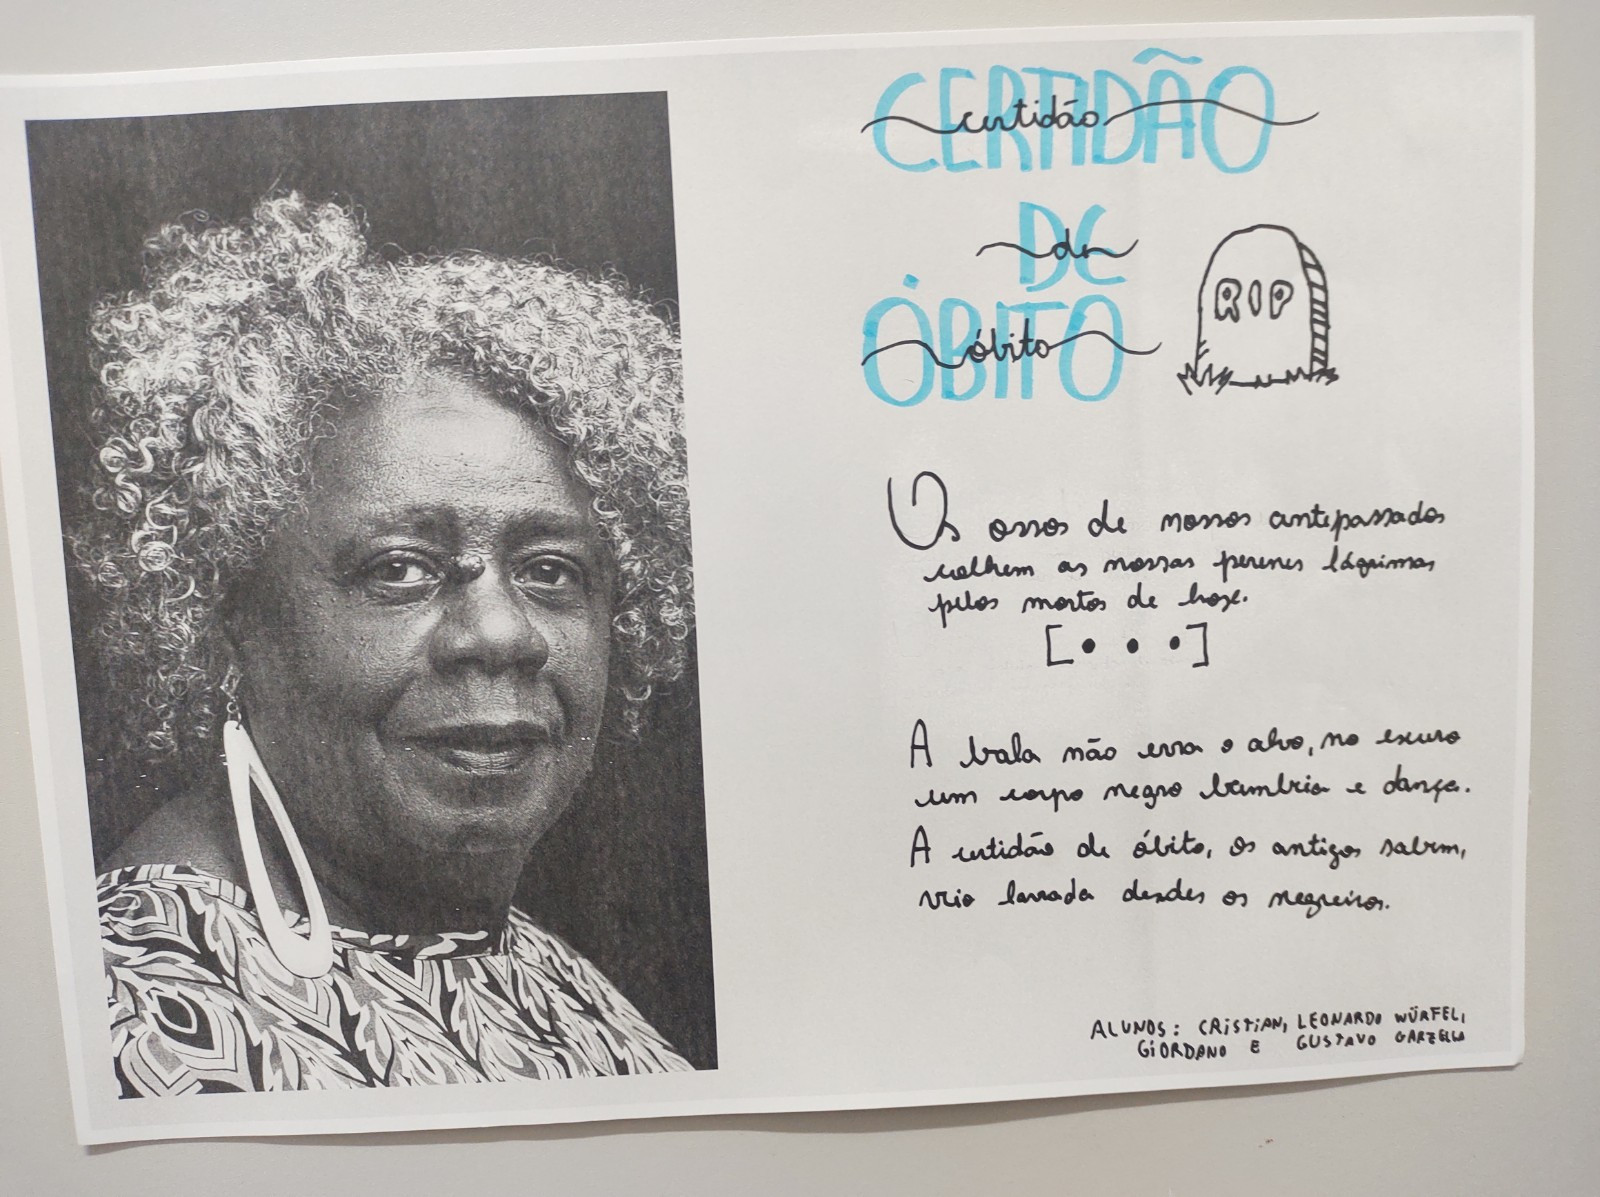 CERTIDÃO
certidão
DE
de
ÓBITO
óbito
RIP
Os ossos de nossos antepassados
colhem as nossas perenes lágrimas
pelos mortos de hoje.
[• • •]
A bala não erra o alvo, no escuro
um corpo negro bambeia e dança.
A certidão de óbito, os antigos sabem,
veio lavrada desdes os negreiros.
ALUNOS: CRISTIAN, LEONARDO WÜRFEL,
GIORDANO E GUSTAVO GARZELLA